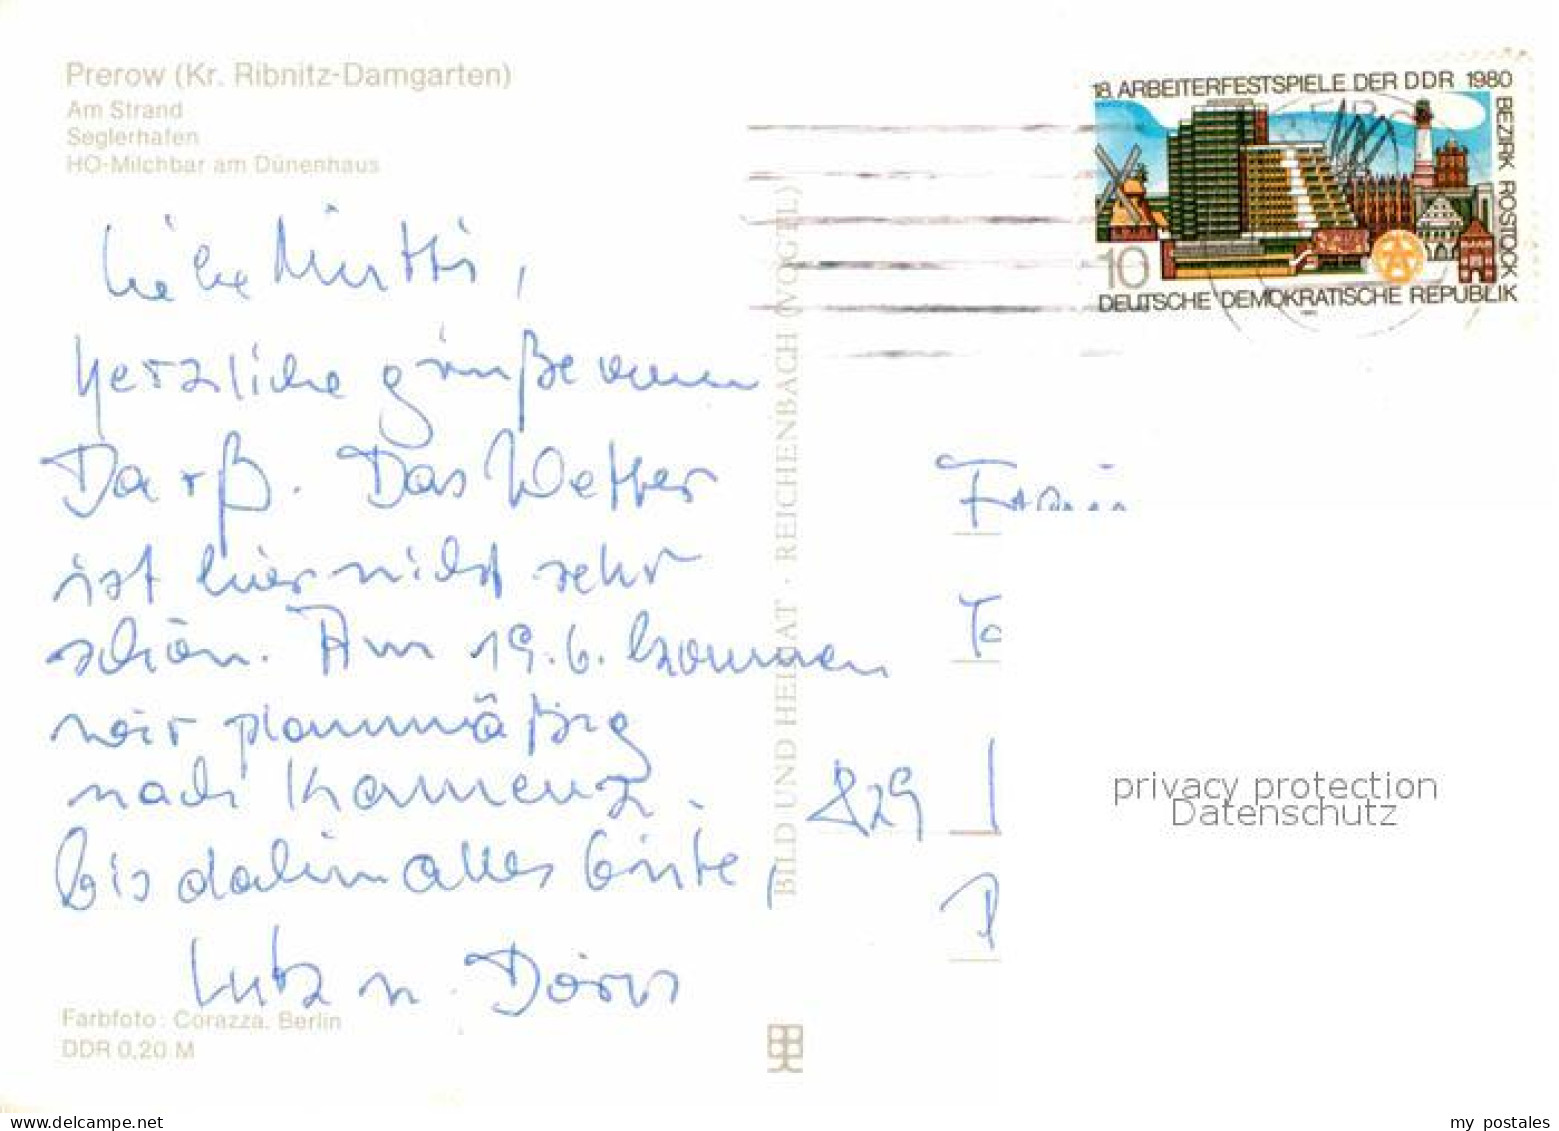 Prerow (Kr. Ribnitz-Damgarten)
Am Strand
Seglerhafen
HO-Milchbar am Dünenhaus
18. ARBEITERFESTSPIELE DER DDR 1980
BEZIRK ROSTOCK
10
DEUTSCHE DEMOKRATISCHE REPUBLIK
Liebe Mutti,
herzliche Grüße vom
Darß. Das Wetter
ist hier nicht sehr
schön. Am 19.6. kommen
wir planmäßig
nach Kamenz.
Bis dahin alles Gute,
Lutz u. Doris
BILD UND HEIMAT · REICHENBACH (VOGTL)
829
privacy protection
Datenschutz
Farbfoto: Corazza, Berlin
DDR 0,20 M
www.delcampe.net
my postales